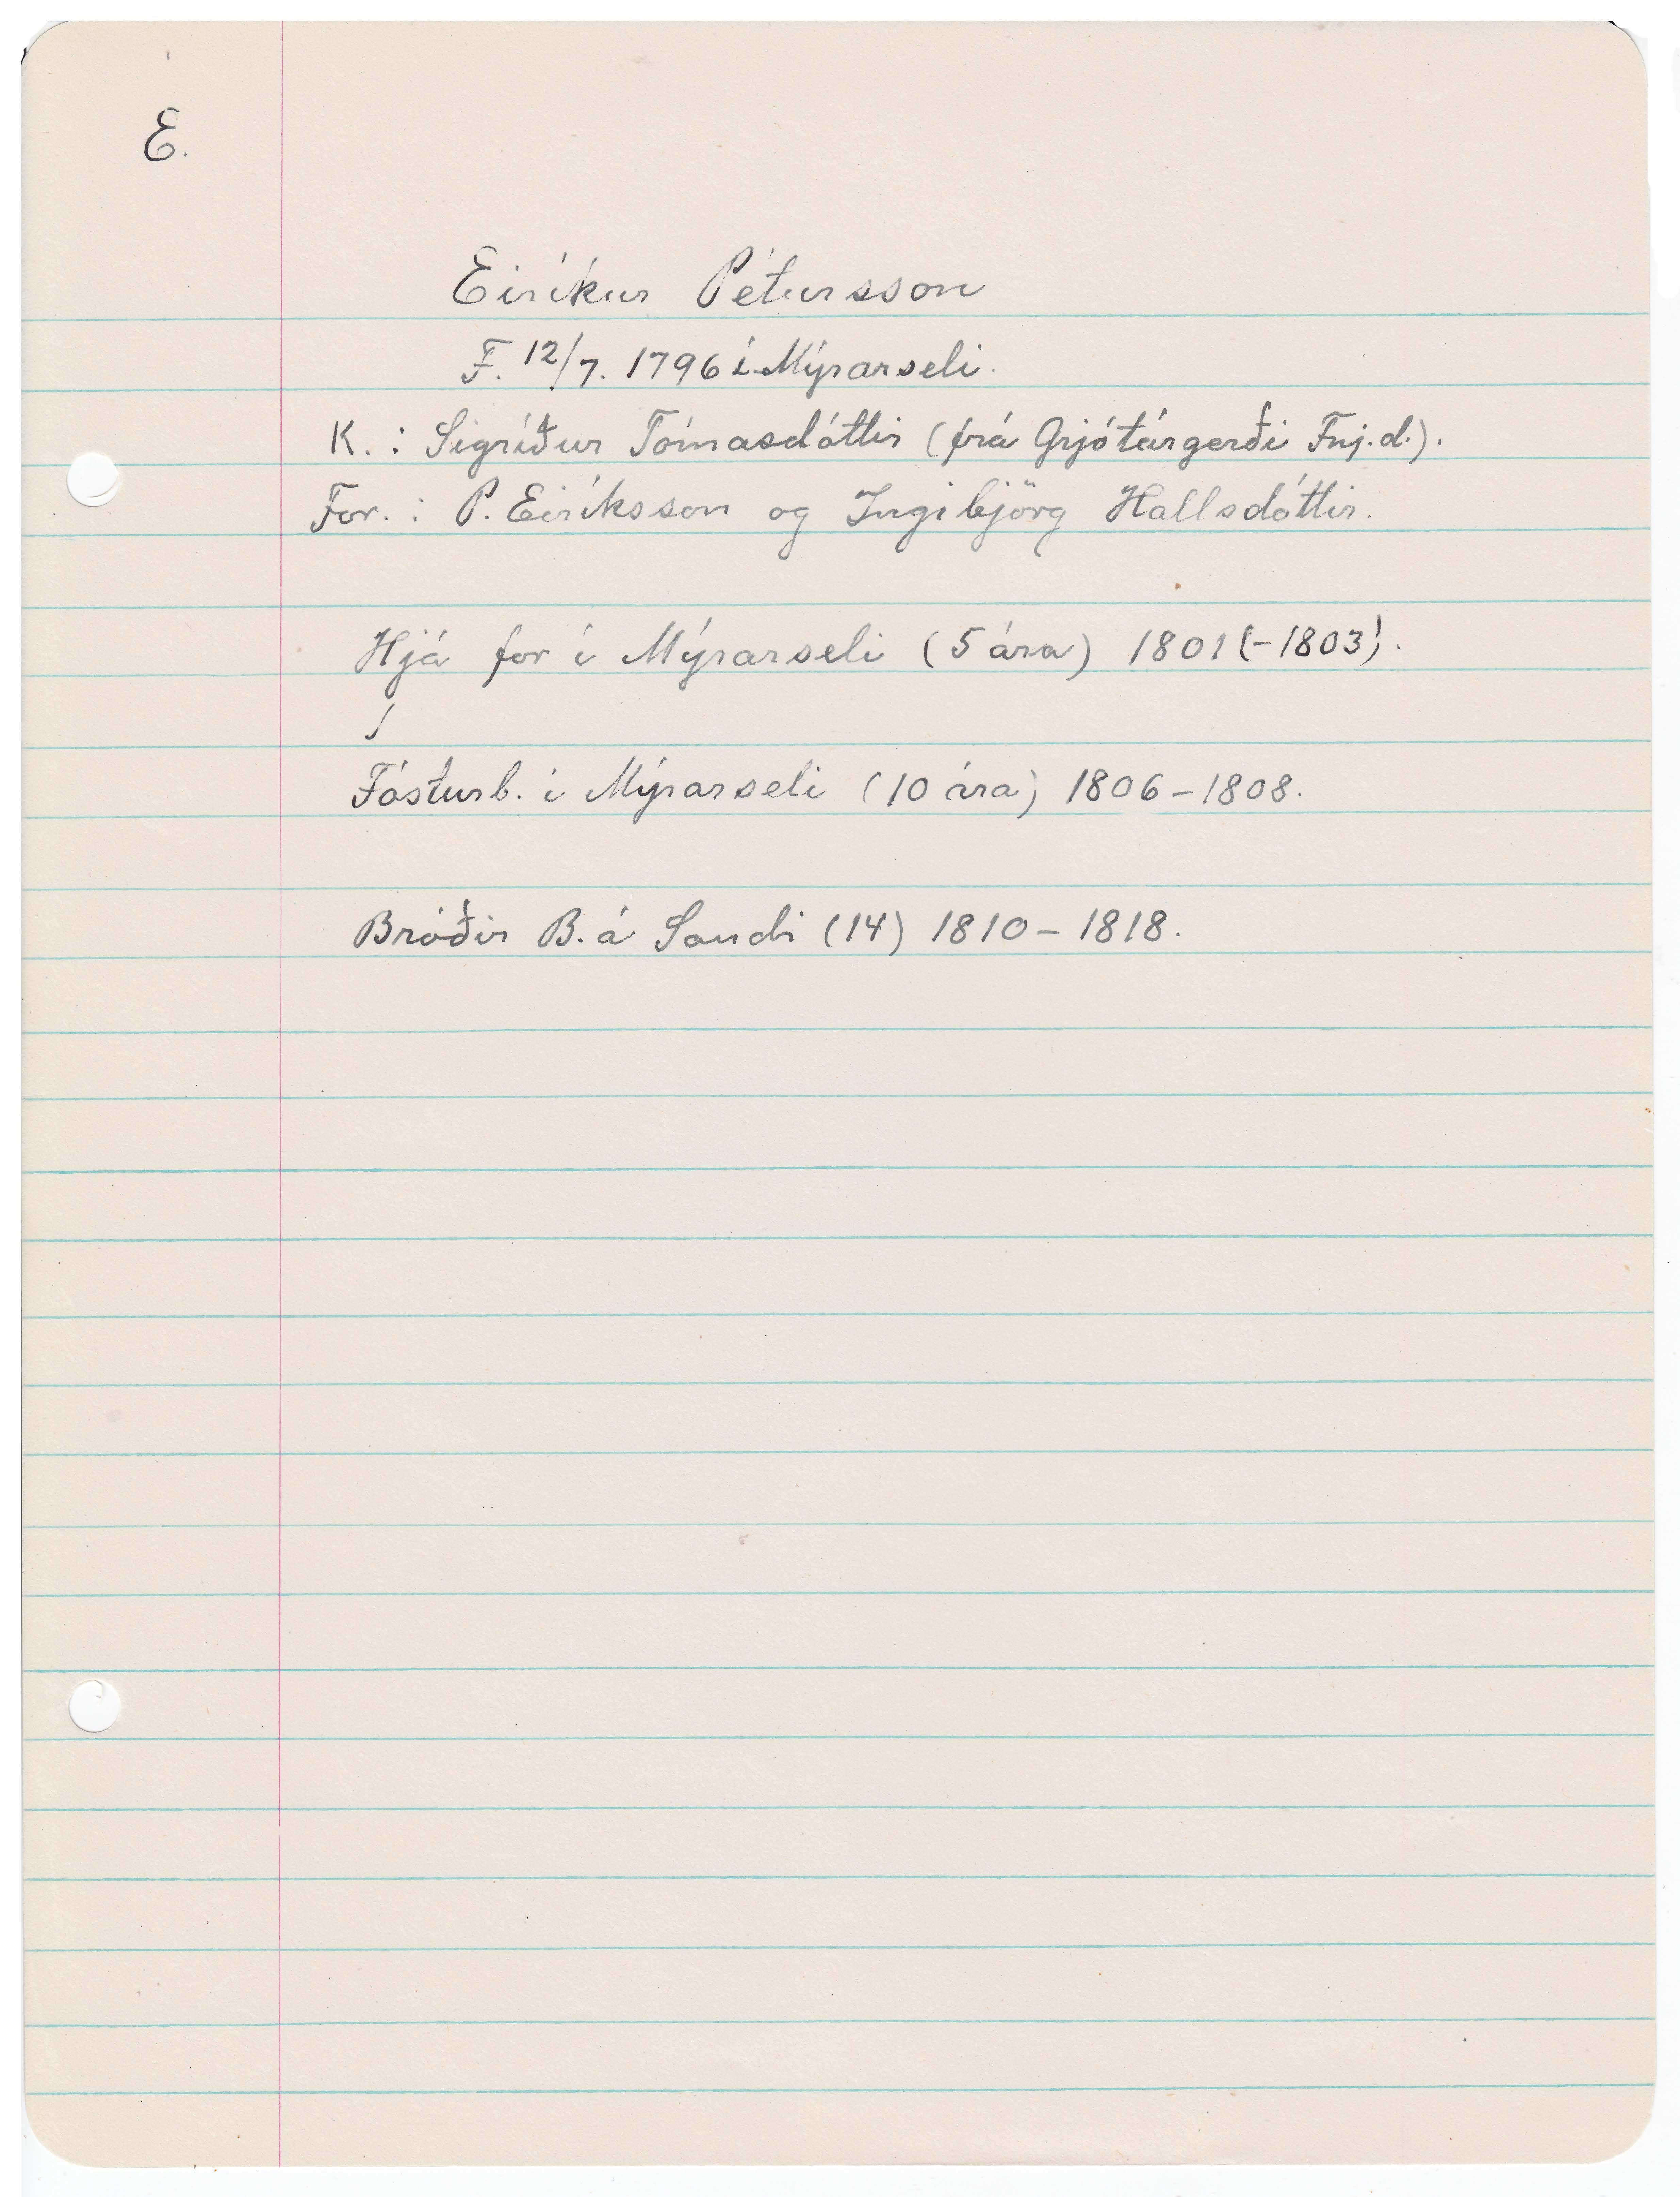 E.
Eiríkur Pétursson
F. 12/7. 1796 í Mýrarseli.
K. : Sigríður Tómasdóttir (frá Grjótárgerði Fnj.d.).
For. : P. Eiríksson og Ingibjörg Hallsdóttir.
Hjá for í Mýrarseli (5 ára) 1801 (-1803).
Fósturb. í Mýrarseli (10 ára) 1806-1808.
Bróðir B. á Sandi (14) 1810-1818.